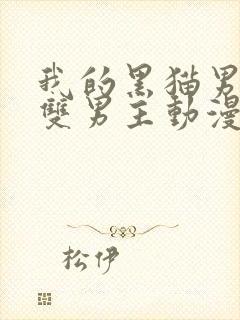 我的黑猫男
雙男主動漫
松伊